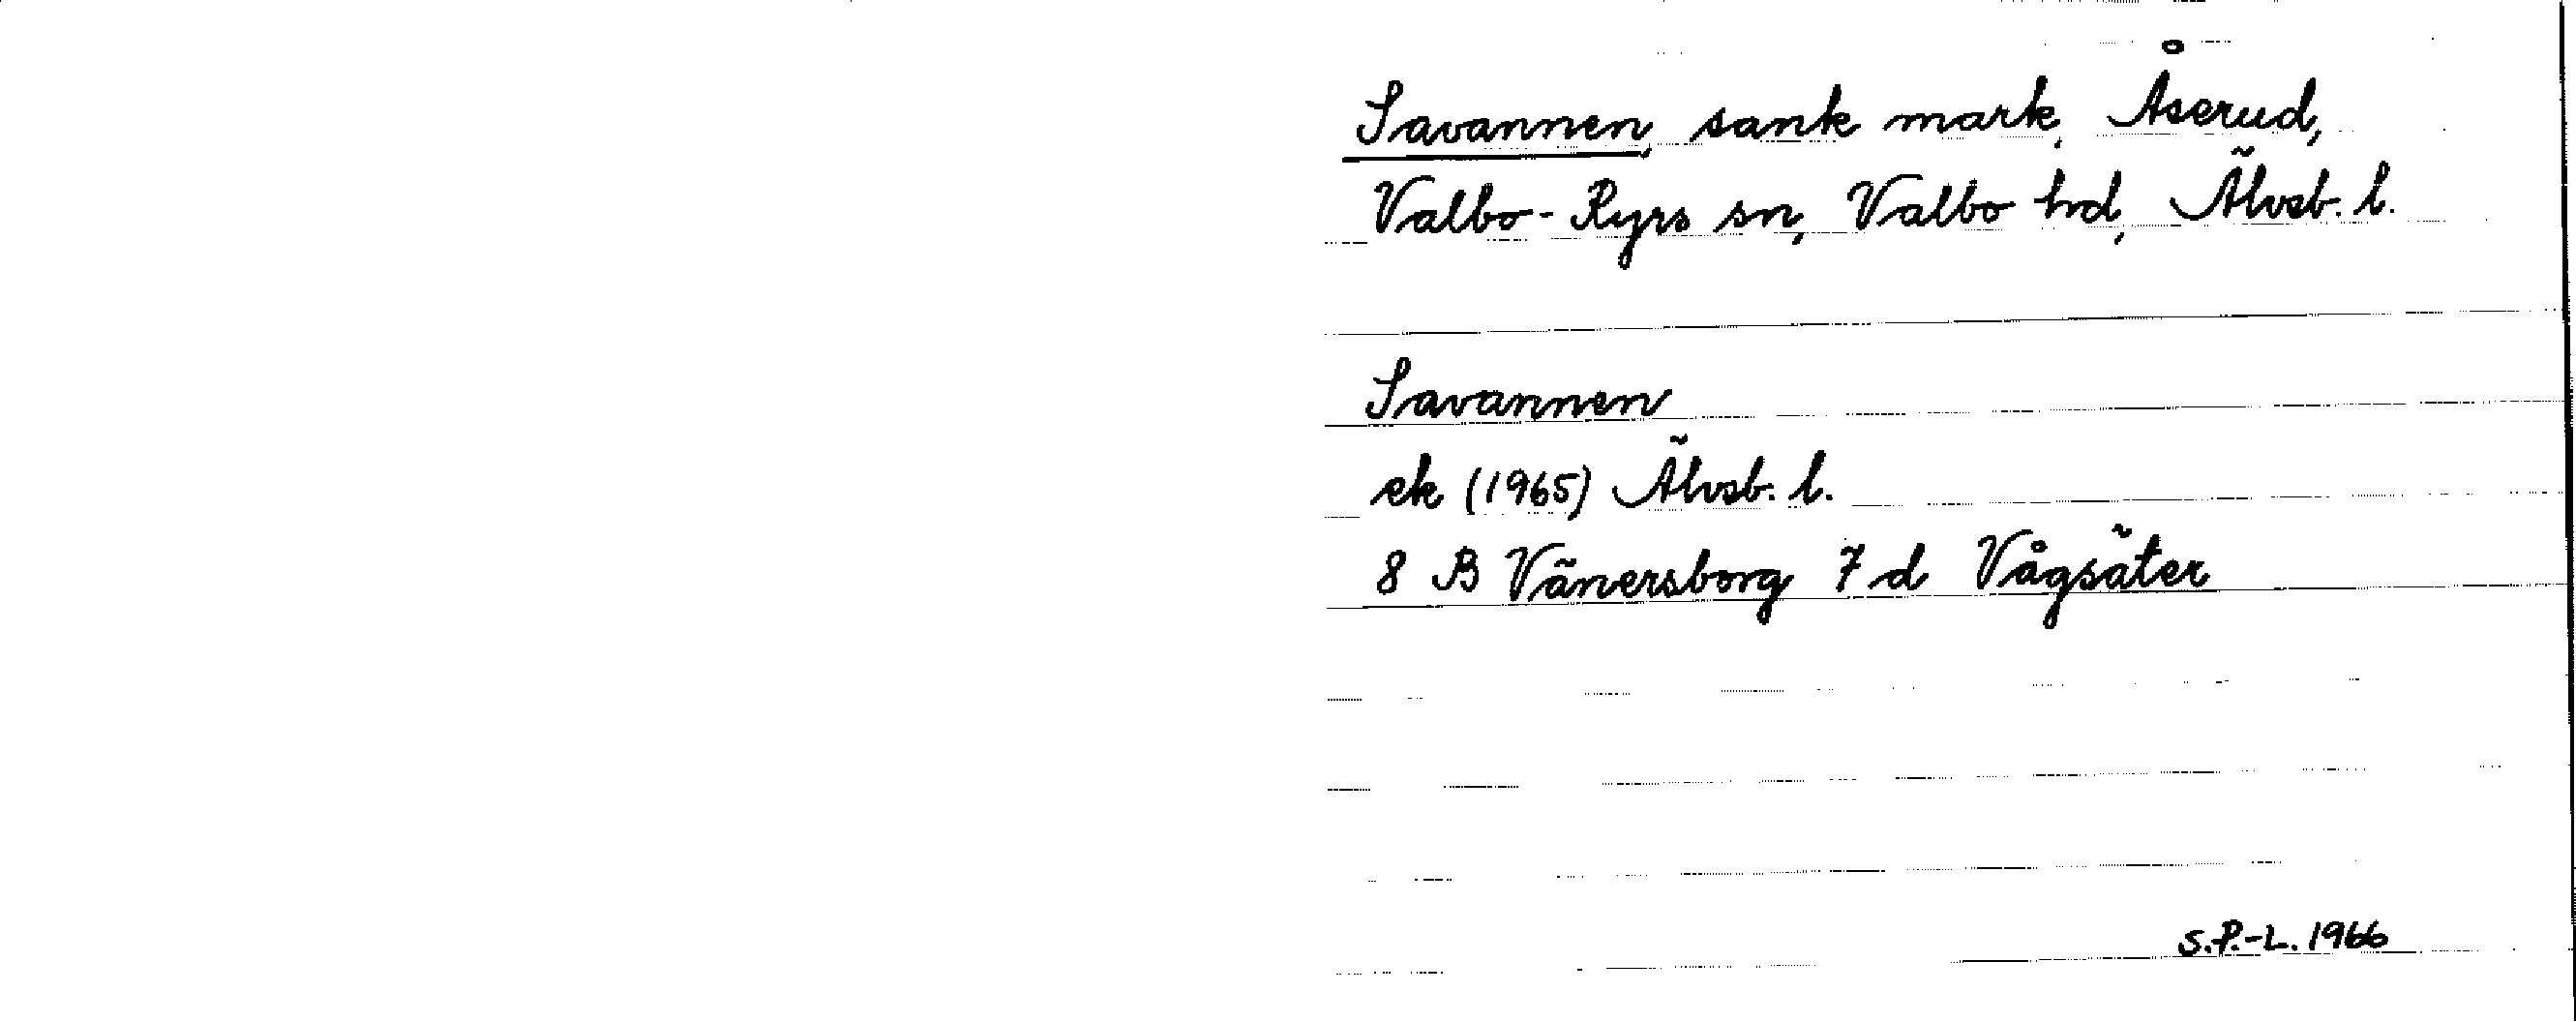 Savannen, sank mark, Åserud,
Valbo-Ryrs sn, Valbo hd, Älvsb. l.
Savannen
ek (1965) Älvsb. l.
8 B Vänersborg 7 d Vågsäter
S.P.-L. 1966